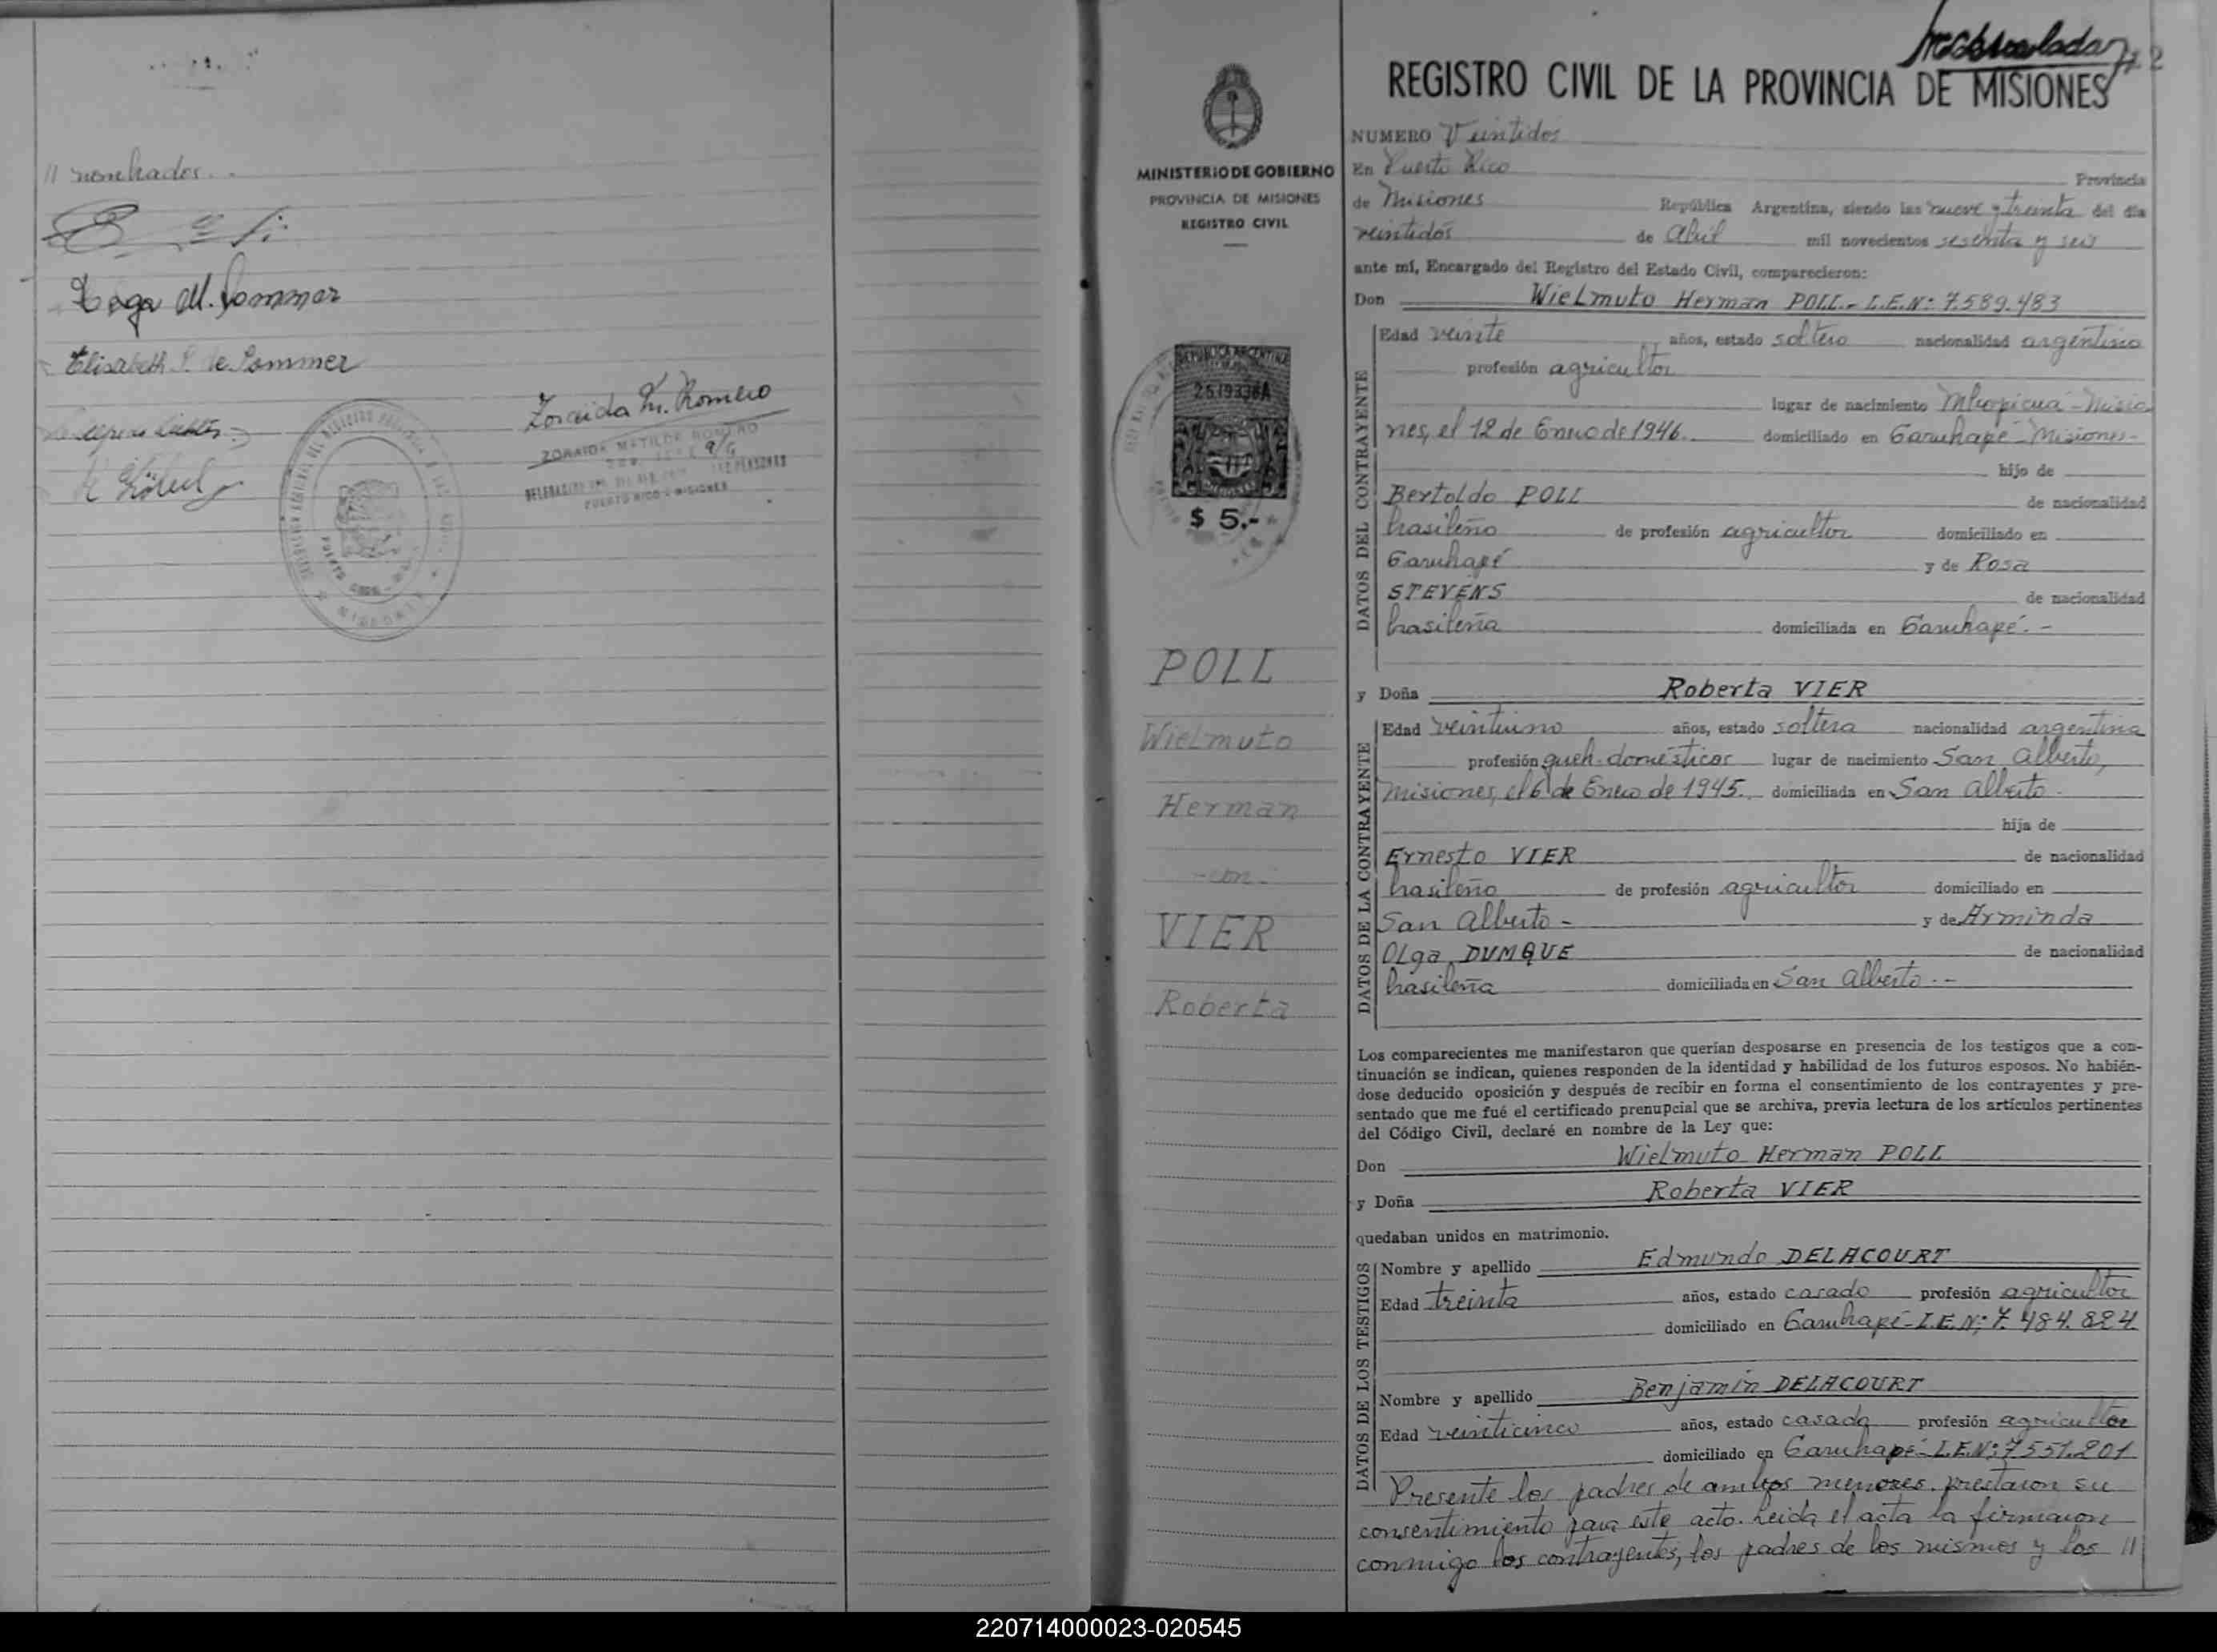 // nombrados..
M. Sommer
Elisabeth P. de Sommer
Zoraida M. Romero
ZORAIDA MATILDE ROMERO
PUERTO RICO - MISIONES
MINISTERIO DE GOBIERNO
PROVINCIA DE MISIONES
REGISTRO CIVIL
REPUBLICA ARGENTINA
MISIONES
$ 5.-
POLL
Wielmuto
Herman
-con-
VIER
Roberta
REGISTRO CIVIL DE LA PROVINCIA DE MISIONES
NUMERO Veintidos
En Puerto Rico Provincia
de Misiones República Argentina, siendo las nueve y treinta del día
veintidós de Abril mil novecientos sesenta y seis
ante mí, Encargado del Registro del Estado Civil, comparecieron:
Don Wielmuto Herman POLL.- L.E.Nº: 7.589.483
DATOS DEL CONTRAYENTE
Edad veinte años, estado soltero nacionalidad argentino
profesión agricultor
lugar de nacimiento Mbopicuá - Misio
nes, el 12 de Enero de 1946. domiciliado en Garuhapé - Misiones-
hijo de
Bertoldo POLL de nacionalidad
brasileño de profesión agricultor domiciliado en
Garuhapé y de Rosa
STEVENS de nacionalidad
brasileña domiciliada en Garuhapé.-
y Doña Roberta VIER
DATOS DE LA CONTRAYENTE
Edad veintiuno años, estado soltera nacionalidad argentina
profesión queh. domésticos lugar de nacimiento San Alberto,
Misiones, el 6 de Enero de 1945. domiciliada en San Alberto.
hija de
Ernesto VIER de nacionalidad
brasileño de profesión agricultor domiciliado en
San Alberto - y de Arminda
Olga DUMQUE de nacionalidad
brasileña domiciliada en San Alberto.--
Los comparecientes me manifestaron que querían desposarse en presencia de los testigos que a con-
tinuación se indican, quienes responden de la identidad y habilidad de los futuros esposos. No habién-
dose deducido oposición y después de recibir en forma el consentimiento de los contrayentes y pre-
sentado que me fué el certificado prenupcial que se archiva, previa lectura de los artículos pertinentes
del Código Civil, declaré en nombre de la Ley que:
Don Wielmuto Herman POLL
y Doña Roberta VIER
quedaban unidos en matrimonio.
DATOS DE LOS TESTIGOS
Nombre y apellido Edmundo DELACOURT
Edad treinta años, estado casado profesión agricultor
domiciliado en Garuhapé - L.E.Nº: 7.484.824
Nombre y apellido Benjamín DELACOURT
Edad veinticinco años, estado casado profesión agricultor
domiciliado en Garuhapé - L.E.Nº: 7.551.201
Presente los padres de ambos menores prestaron su
consentimiento para este acto. Leida el acta la firmaron
conmigo los contrayentes, los padres de los mismos y los //
220714000023-020545